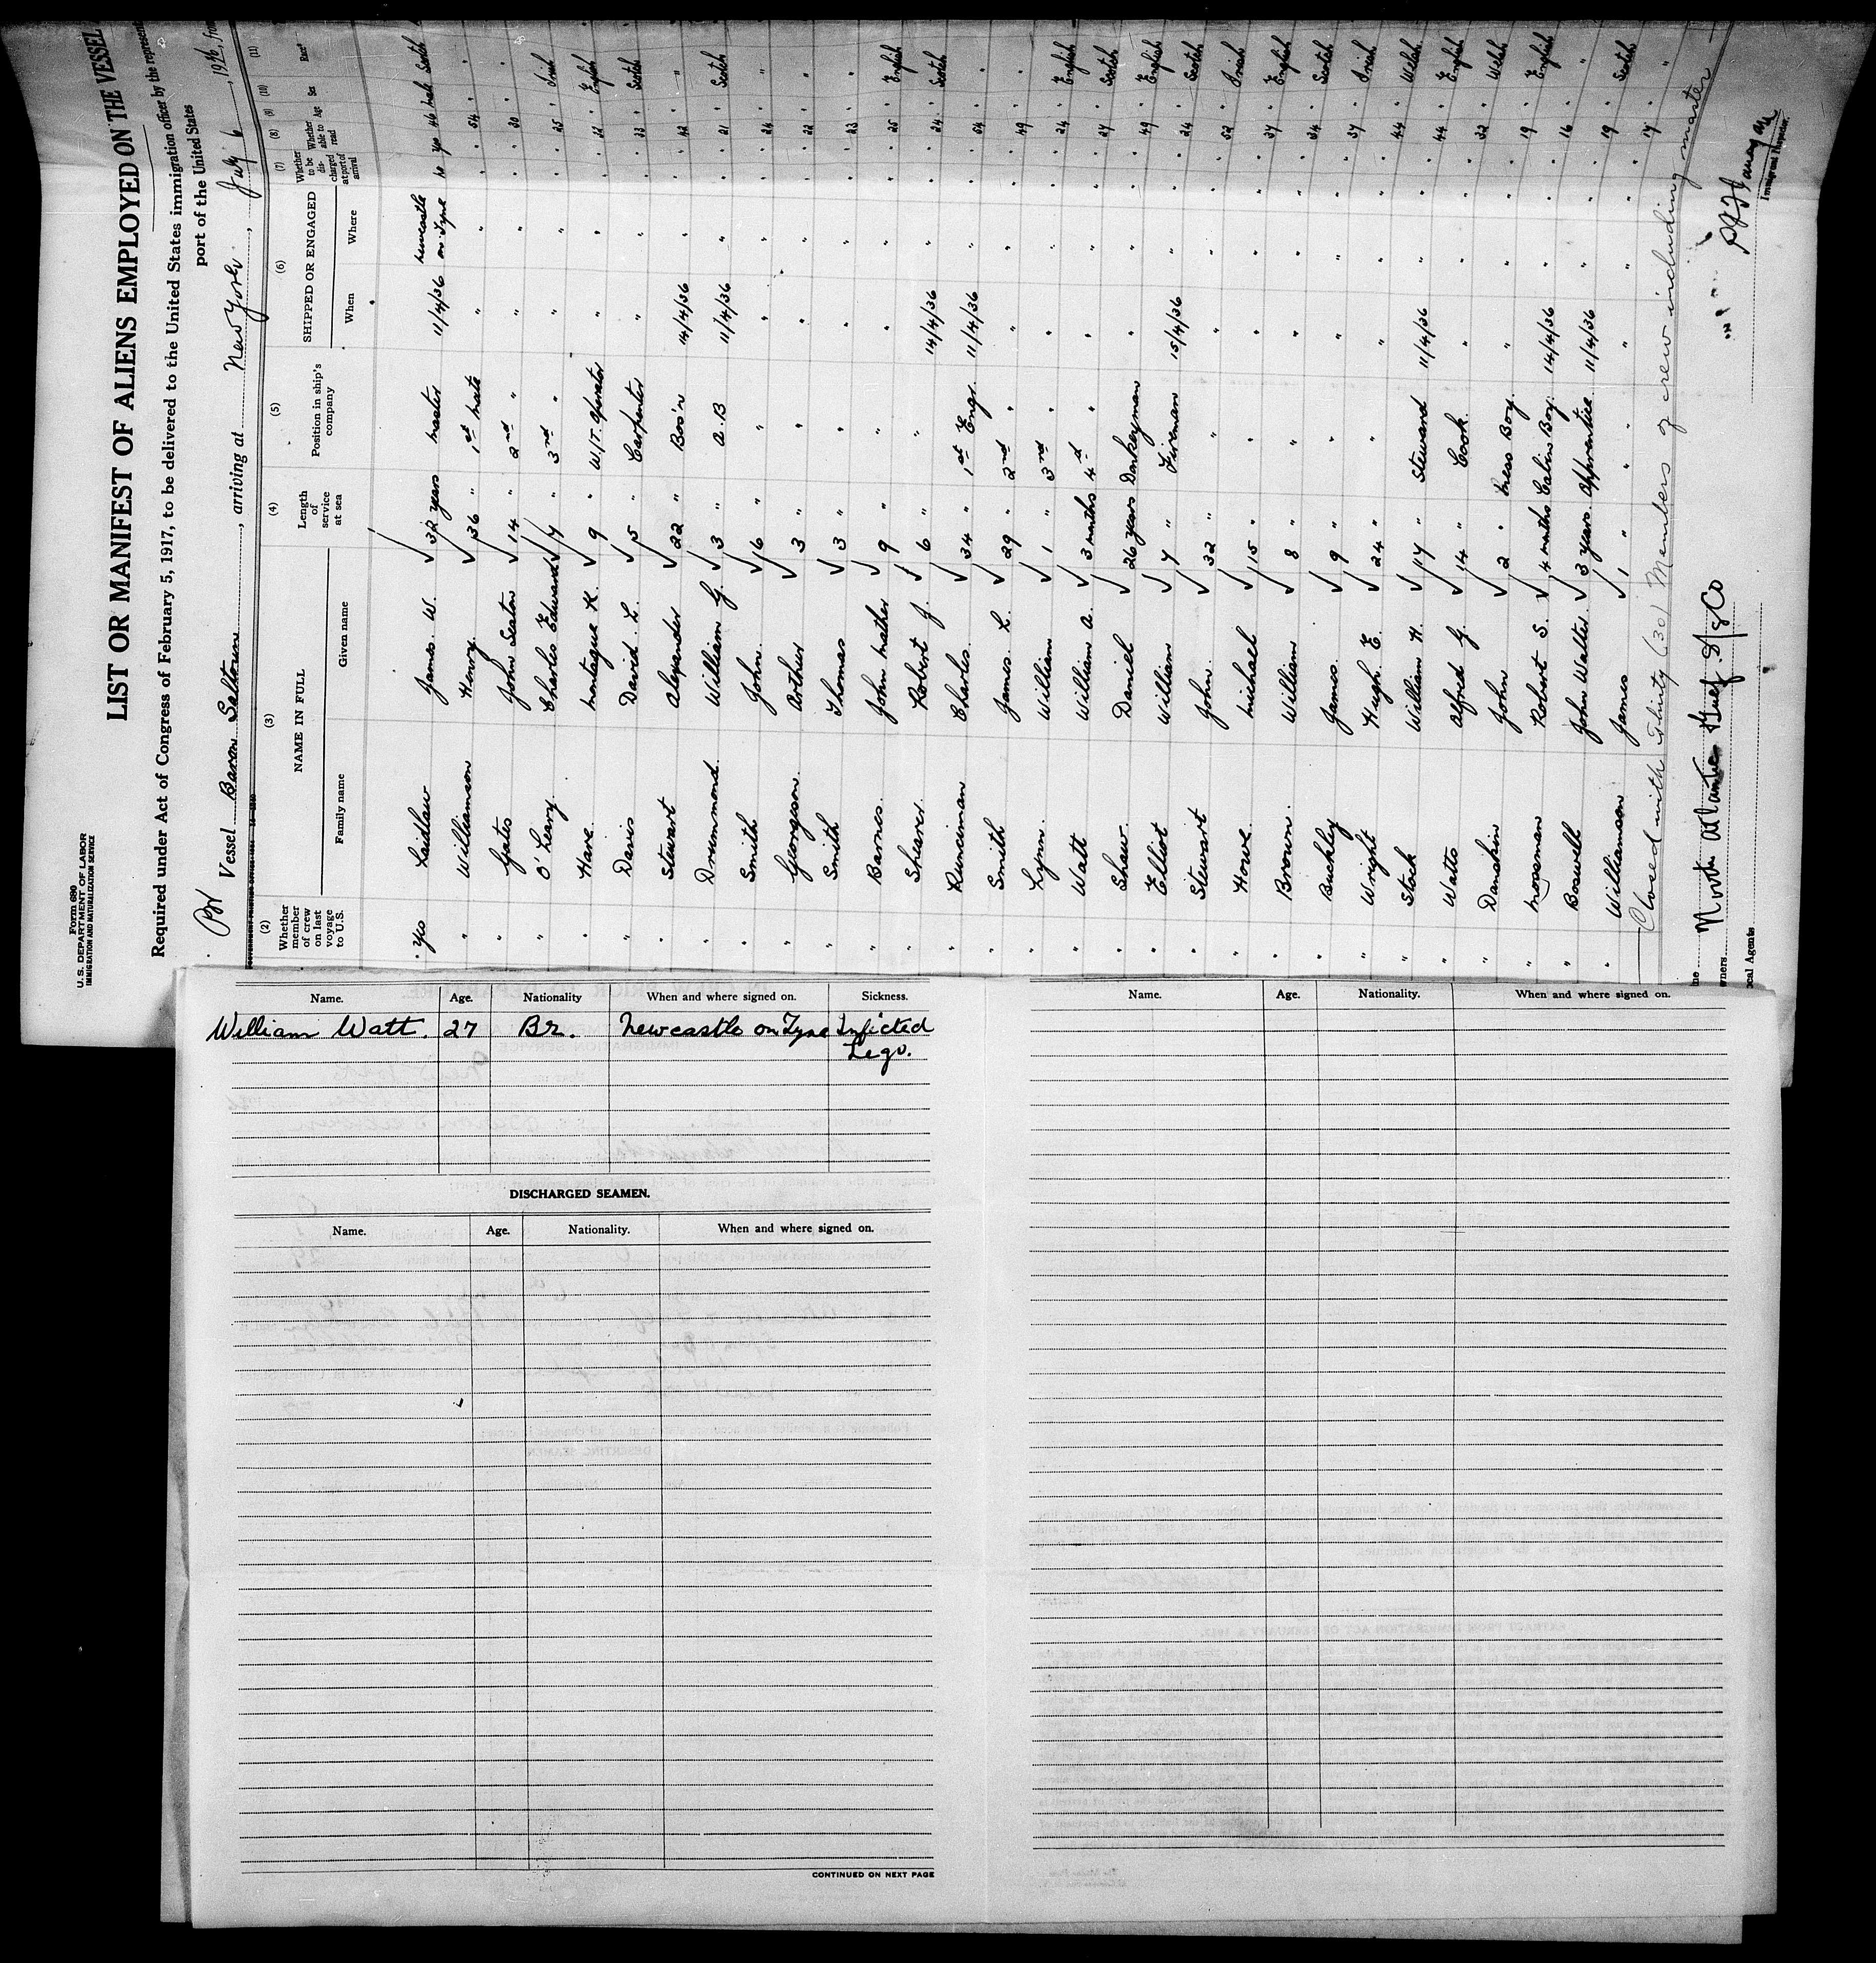 Form 680
U.S. DEPARTMENT OF LABOR
IMMIGRATION AND NATURALIZATION SERVICE
LIST OR MANIFEST OF ALIENS EMPLOYED ON THE VESSEL
Required under Act of Congress of February 5, 1917, to be delivered to the United States immigration officer by the represent
port of the United States
Br Vessel Baron Saltoun, arriving at New York, July 6, 1936, from
(2) (3) (4) (5) (6) (7) (8) (9) (10) (11)
Whether member of crew on last voyage to U.S. NAME IN FULL Family name Given name Length of service at sea Position in ship's company SHIPPED OR ENGAGED When Where Whether to be discharged at port of arrival Whether able to read Age Sex Race*
Yes Laidlaw James W. 32 years master 11/4/36 newcastle on Tyne no yes 46 male Scotch
" Williamson Henry 36 " 1st mate " " " " 54 " "
" Gates John Seaton 14 " 2nd " " " " " 30 " "
" O'Leary Charles Edward 7 " 3rd " " " " " 25 " Irish
" Hare Montague H. 9 " W/T. Operator " " " " 22 " English
" Davis David L. 5 " Carpenter " " " " 33 " Scotch
" Stewart Alexander 22 " Bos'n 14/4/36 " " " 42 " "
" Drummond William G. 3 " A.B 11/4/36 " " " 21 " Scotch
" Smith John 6 " " " " " " 24 " "
" Georgeson Arthur 3 " " " " " " 22 " "
" Smith Thomas 3 " " " " " " 23 " "
" Barnes John Mather 9 " " " " " " 25 " English
" Shearer Robert J. 6 " " 14/4/36 " " " 24 " Scotch
" Runciman Charles 34 " 1st Engr. 11/4/36 " " " 54 " "
" Smith James L. 29 " 2nd " " " " " 49 " "
" Lynn William 1 " 3rd " " " " " 24 " English
" Watt William A. 3 months 4th " " " " " 27 " Scotch
" Shaw Daniel 26 years Donkeyman " " " " 49 " English
" Elliot William 7 " Fireman 15/4/36 " " " 24 " Scotch
" Stewart John 32 " " " " " " 52 " Irish
" Howe Michael 15 " " " " " " 37 " English
" Brown William 8 " " " " " " 34 " Scotch
" Buckley James 9 " " " " " " 37 " Irish
" Wright Hugh E. 24 " " " " " " 44 " Welsh
" Stock William H. 17 " Steward 11/4/36 " " " 44 " English
" Watts Alfred G. 14 " Cook " " " " 32 " Welsh
" Danskin John 2 " Mess Boy " " " " 19 " English
" Mossman Robert S. 4 months Cabin Boy 14/4/36 " " " 16 " "
" Boswell John Walter 3 years Apprentice 11/4/36 " " " 19 " Scotch
" Williamson James 1 " " " " " " 17 " "
Closed with thirty (30) Members of crew including master
North Atlantic & Gulf S/S Co
Immigrant Inspector.
Name. Age. Nationality When and where signed on. Sickness.
William Watt. 27 Br. Newcastle on Tyne Infected
Legs.
DISCHARGED SEAMEN.
Name. Age. Nationality. When and where signed on.
CONTINUED ON NEXT PAGE
Name. Age. Nationality. When and where signed on.